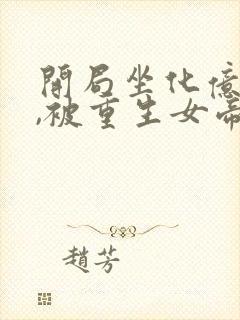 開局坐化億
,被重生女帝
趙芳